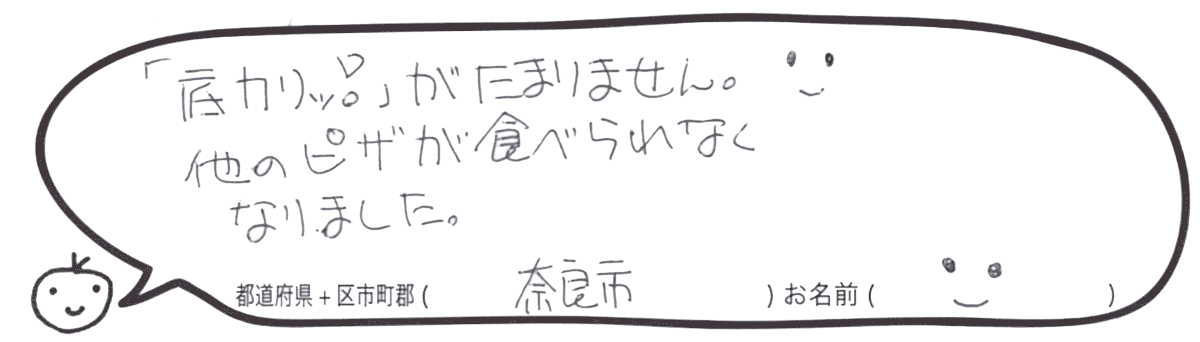 「底カリッ!」がたまりません。
他のピザが食べられなく
なりました。
都道府県+区市町郡( 奈良市 )お名前( )